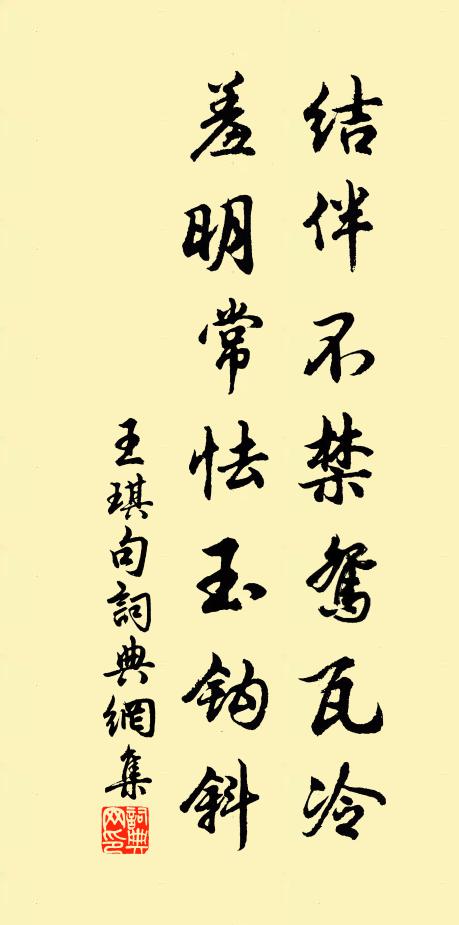 結伴不禁鴛瓦冷
羞明常怯玉鈎斜
王琪句詞典網集
詞典網印